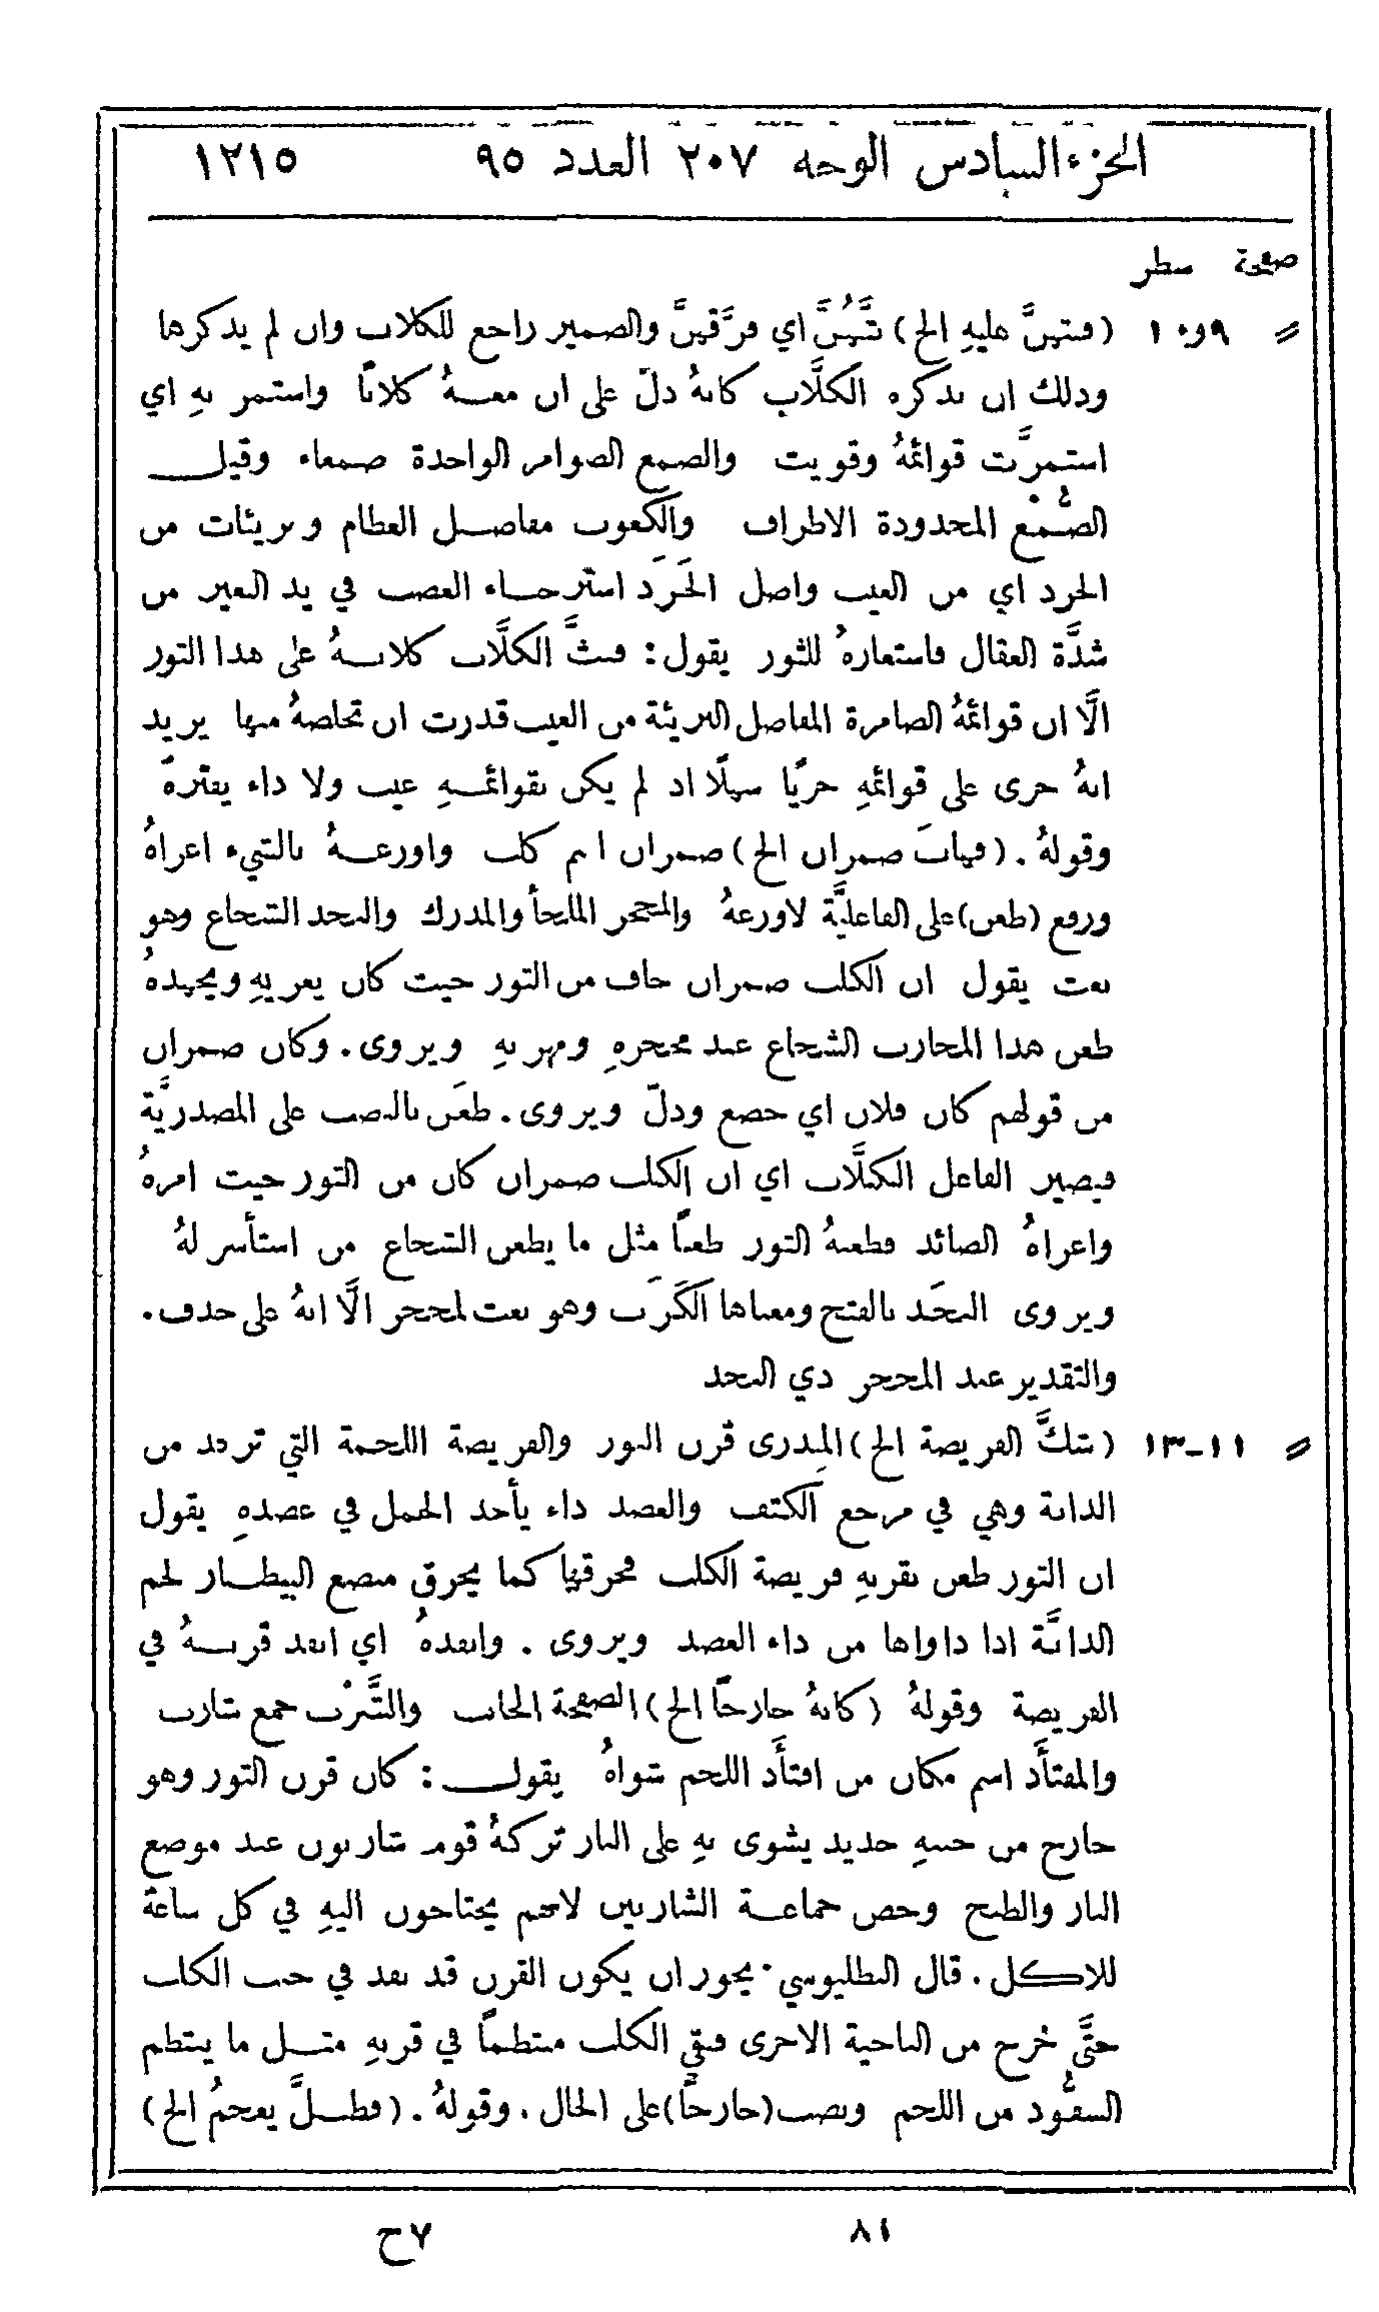 الجزء السادس الوجه ٢٠٧ العدد ٩٥ ١٢١٥
صفحة سطر
= ٩و١٠ (فبثهنَّ عليهِ الخ) بثَّهُنَّ اي فرَّقهنَّ والضمير راجع للكلاب وان لم يذكرها
وذلك ان بذكره الكلَّاب كانهُ دلّ على ان معــهُ كلابًا واستمر بهِ اي
استمرَّت قوائمهُ وقويت والصمع الضوامر الواحدة صمعاء وقيل
الصُّمْع المحدودة الاطراف والكعوب مفاصل العظام وبريئات من
الحرد اي من العيب واصل الحَرَد استرخاء العصب في يد البعير من
شدَّة العقال فاستعارهُ للثور يقول: فبثَّ الكلَّاب كلابــهُ على هذا الثور
الَّا ان قوائمهُ الضامرة المفاصل البريئة من العيب قدرت ان تخلصهُ منها يريد
انهُ جرى على قوائمهِ جريًا سهلًا اذ لم يكن بقوائمــهِ عيب ولا داء يفترهُ
وقولهُ. (فهابَ ضمران الخ) ضمران اسم كلب واوزعــهُ بالشيء اغراهُ
ورفع (طعن) على الفاعليَّة لاوزعهُ والمحجر الملجأ والمدرك والنجد الشجاع وهو
نعت يقول ان الكلب ضمران خاف من الثور حيث كان يغريهِ ويجهدهُ
طعن هذا المحارب الشجاع عند محجرهِ ومهربهِ ويروى. وكان ضمران
من قولهم كان فلان اي خضع وذلّ ويروى. طعَن بالنصب على المصدريَّة
فيصير الفاعل الكلَّاب اي ان الكلب ضمران كان من الثور حيث امرهُ
واغراهُ الصائد فطعنهُ الثور طعنًا مثل ما يطعن الشجاع من استأسر لهُ
ويروى النجَد بالفتح ومعناها الكَرَب وهو نعت لمحجر الَّا انهُ على حذف.
والتقدير عند المحجر ذي النجد
= ١١-١٣ (شكَّ الفريصة الخ) المِدرى قرن الثور والفريصة اللحمة التي ترعد من
الدابة وهي في مرجع الكتف والعضد داء يأخذ الجمل في عضدهِ يقول
ان الثور طعن بقرنهِ فريصة الكلب فخرقها كما يخرق مبضع البيطــار لحم
الدابَّة اذا داواها من داء العضد ويروى. وانفذهُ اي انفذ قرنــهُ في
الفريصة وقولهُ (كانهُ خارجًا الخ) الصفحة الجانب والشَّرْب جمع شارب
والمفتأَد اسم مكان من افتأَد اللحم شواهُ يقول: كان قرن الثور وهو
خارج من جنبهِ حديد يشوى بهِ على النار تركهُ قوم شاربون عند موضع
النار والطبخ وخص جماعــة الشاربين لانهم يحتاجون اليهِ في كل ساعة
للاكل. قال البطليوسي. يجوز ان يكون القرن قد نفذ في جنب الكلب
حتَّى خرج من الناحية الاخرى فبقي الكلب منتظمًا في قرنهِ مثــل ما ينتظم
السفُّود من اللحم ونصب (خارجًا) على الحال. وقولهُ. (فظــلَّ يعجمُ الخ)
٨١ ٧ح